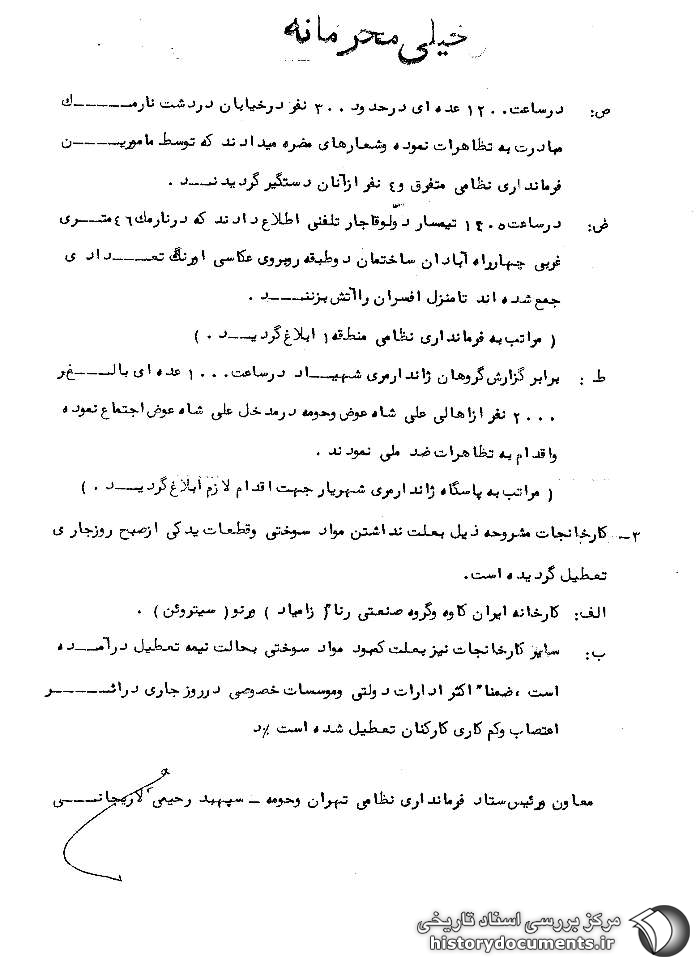 خیلی محرمانه
ص: درساعت ۱۲۰۰ عده ای درحدود ۳۰۰ نفر درخیابان دردشت نارمک
مبادرت به تظاهرات نموده وشعارهای مضره میدادند که توسط مامورین
فرمانداری نظامی متفرق و۴ نفر ازآنان دستگیر گردیدند .
ض: درساعت ۱۴۰۵ تیمسار دولوقاجار تلفنی اطلاع دادند که درنارمک ۴۶ متری
غربی چهارراه آبادان ساختمان دوطبقه روبروی عکاسی اورنگ تعدادی
جمع شده اند تامنزل افسران راآتش بزنند .
( مراتب به فرمانداری نظامی منطقه ۱ ابلاغ گردید . )
ط : برابر گزارش گروهان ژاندارمری شهیاد درساعت ۱۰۰۰ عده ای بالغ بر
۲۰۰۰ نفر ازاهالی علی شاه عوض وحومه درمدخل علی شاه عوض اجتماع نموده
واقدام به تظاهرات ضد ملی نمودند .
( مراتب به پاسگاه ژاندارمری شهریار جهت اقدام لازم ابلاغ گردید . )
۳- کارخانجات مشروحه ذیل بعلت نداشتن مواد سوختی وقطعات یدکی ازصبح روزجاری
تعطیل گردیده است.
الف: کارخانه ایران کاوه وگروه صنعتی رنا ( زامیاد ) ورنو ( سیتروئن ) .
ب: سایر کارخانجات نیز بعلت کمبود مواد سوختی بحالت نیمه تعطیل درآمده
است ، ضمنا" اکثر ادارات دولتی وموسسات خصوصی درروز جاری دراثر
اعتصاب وکم کاری کارکنان تعطیل شده است
معاون ورئیس ستاد فرمانداری نظامی تهران وحومه - سپهبد رحیمی لاریجانی
مرکز بررسی اسناد تاریخی
historydocuments.ir